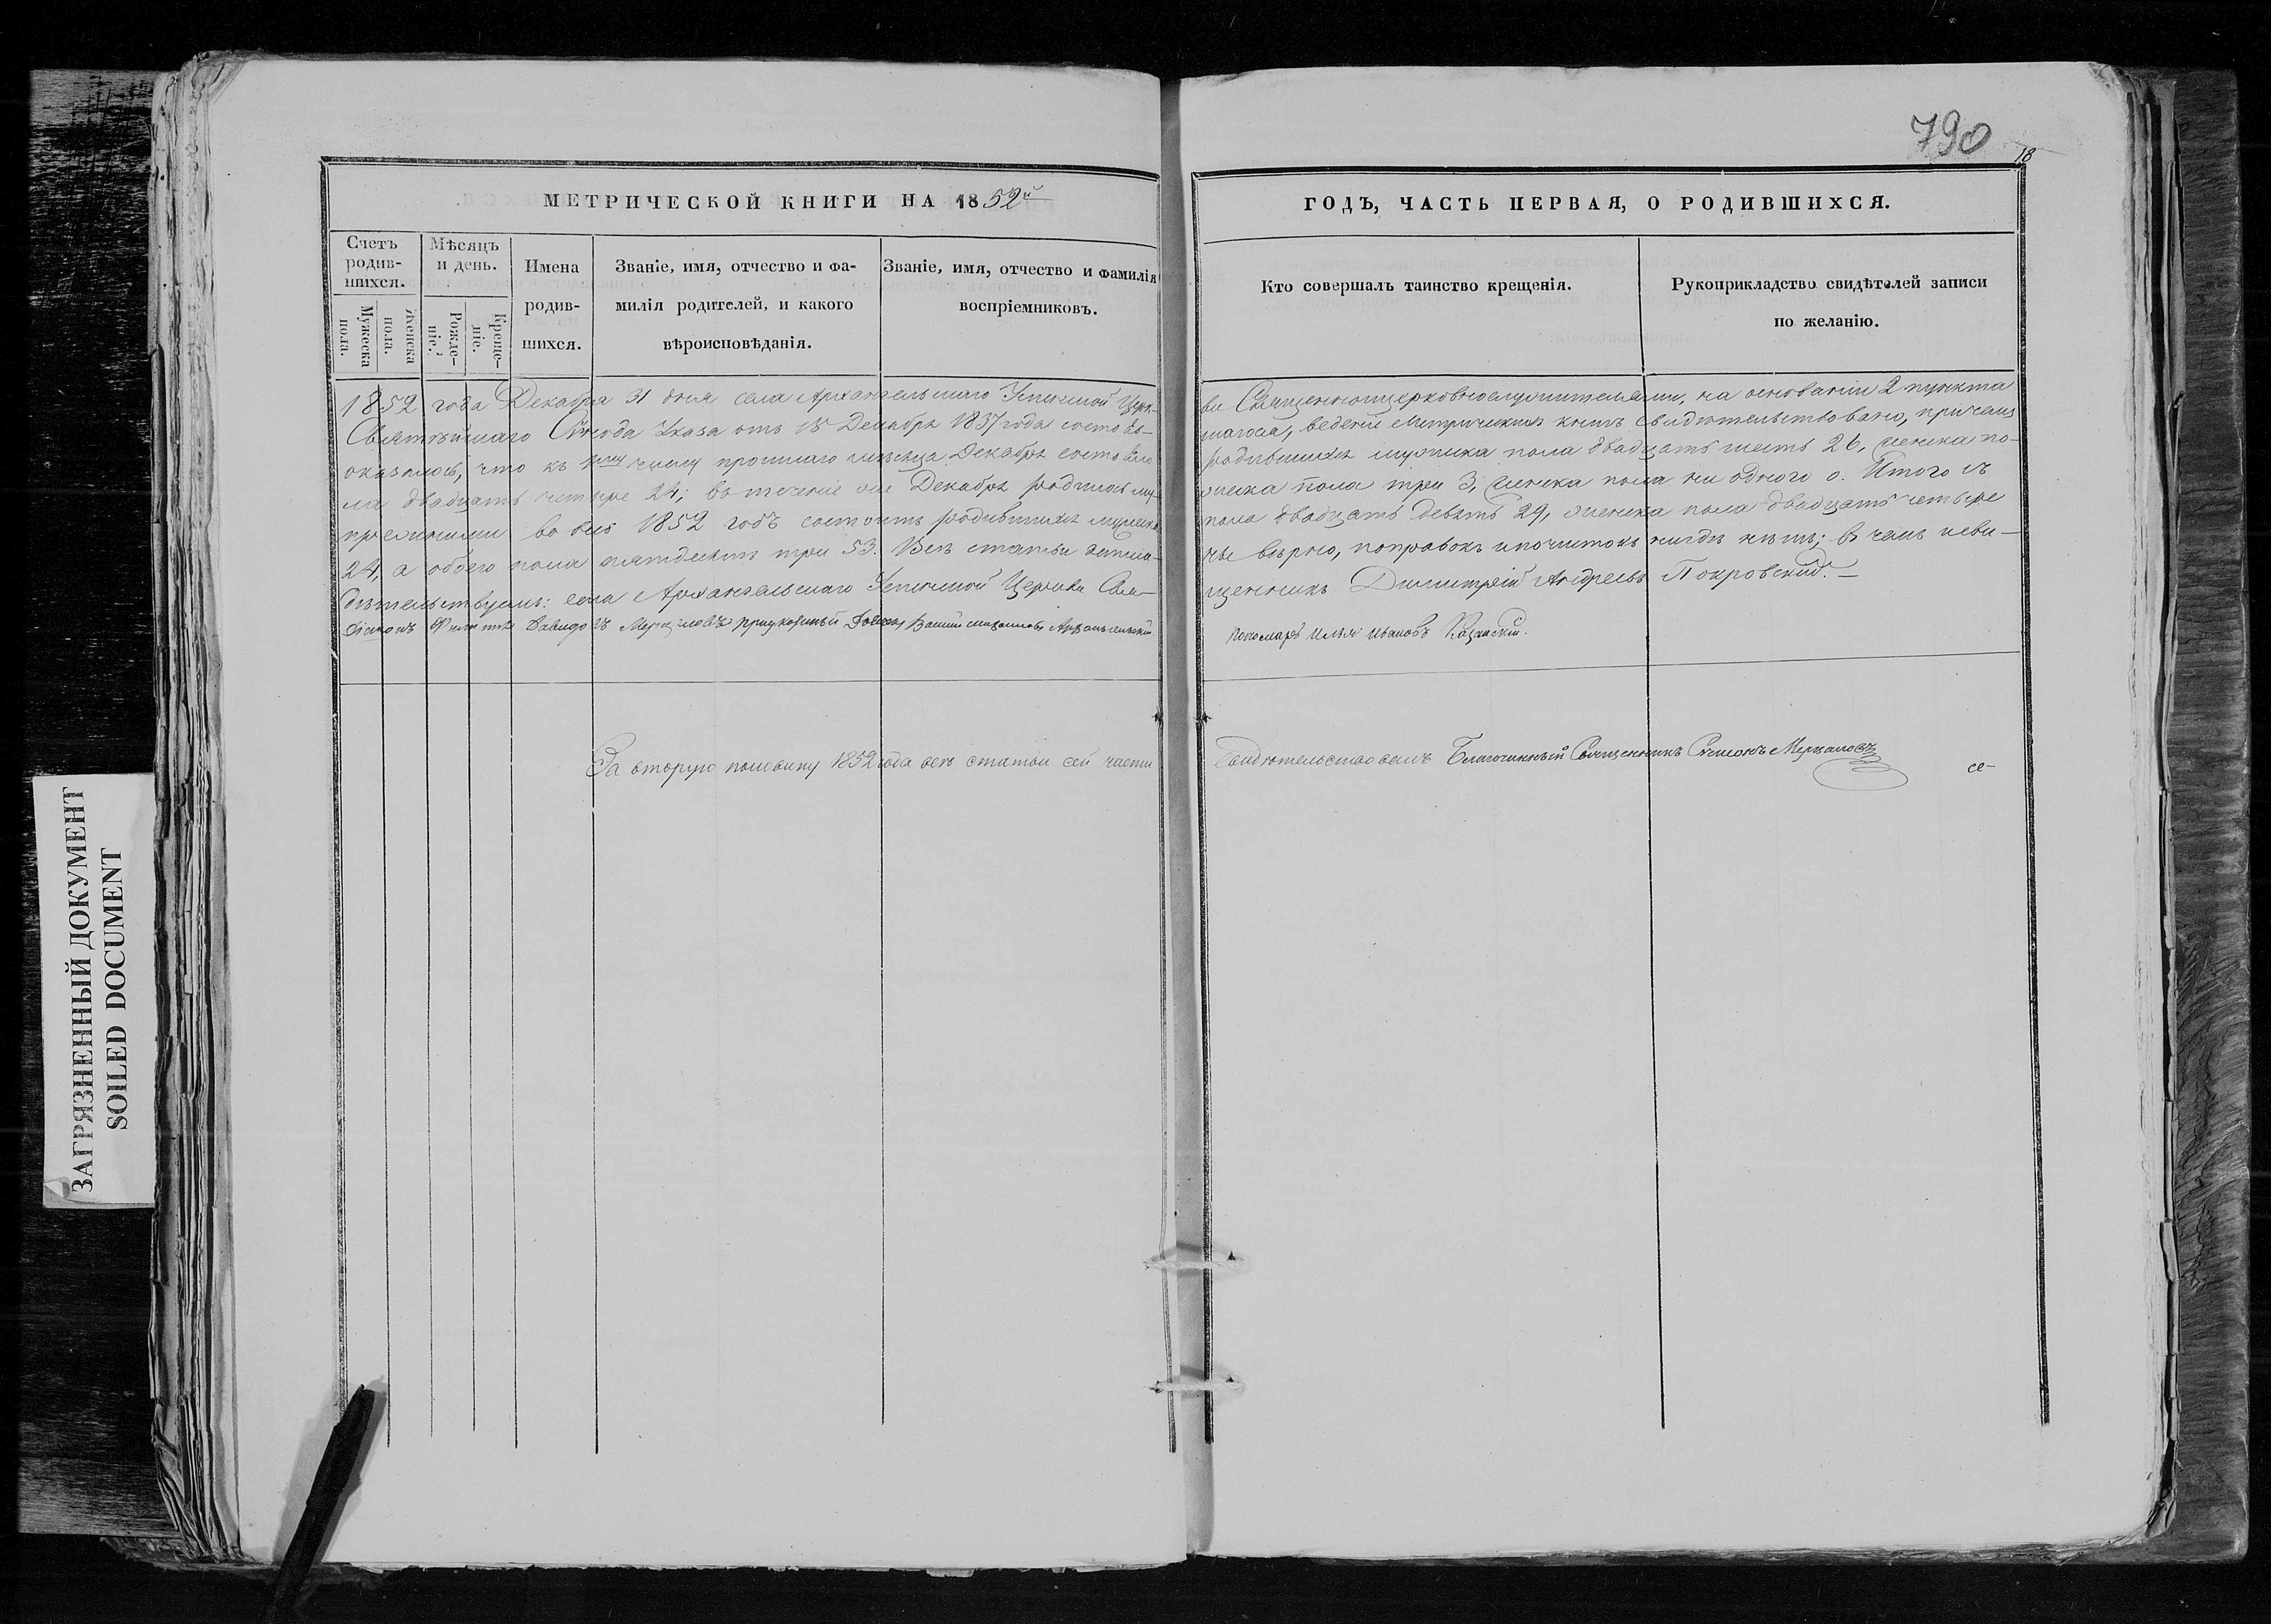 790
18
МЕТРИЧЕСКОЙ КНИГИ НА 1852й
ГОДЪ, ЧАСТЬ ПЕРВАЯ, О РОДИВШИХСЯ.
Счетъ родив-шихся.
Мужеска пола.
Женска пола.
Мѣсяцъ и день.
Рожде-ніе.
Креще-ніе.
Имена родив-шихся.
Званіе, имя, отчество и фа-милія родителей, и какого вѣроисповѣданія.
Званіе, имя, отчество и фамилія воспріемниковъ.
Кто совершалъ таинство крещенія.
Рукоприкладство свидѣтелей записи по желанію.
1852 года Декабря 31 дня села Архангельскаго Успенской Церк-
ви Священноцерковнослужителями, на основаніи 2 пункта
Святѣйшаго Сѵнода Указа отъ 18 Декабря 1837 года состояв-
шагося, веденіе Метрическихъ книгъ свидѣтельствовано, при чемъ
оказалось, что къ числу прошлаго мѣсяца Декабря состояло
родившихся мужеска пола двадцать шесть 26, женска по-
ла двадцать четыре 24; въ теченіе Декабря родилось му-
жеска пола три 3, женска пола ни одного 0. Итого съ
прежними во весь 1852 годъ состоитъ родившихся мужеска
пола двадцать девять 29, женска пола двадцать четыре
24, а обоего пола пятдесятъ три 53. Всѣ статьи писа-
ны вѣрно, поправокъ и почистокъ нигдѣ нѣтъ; въ чемъ и сви-
дѣтельствуемъ: села Архангельскаго Успенской Церкви Свя-
щенникъ Димитрій Андреевъ Покровскій.
Діаконъ Филиппъ Давидовъ Мерцаловъ Архангельскій
пономарь Илья Ивановъ Казанскій.
За вторую половину 1852 года всѣ статьи сей части
свидѣтельствовалъ Благочинный Священникъ Симеонъ Мерцаловъ
се-
ЗАГРЯЗНЕННЫЙ ДОКУМЕНТ
SOILED DOCUMENT